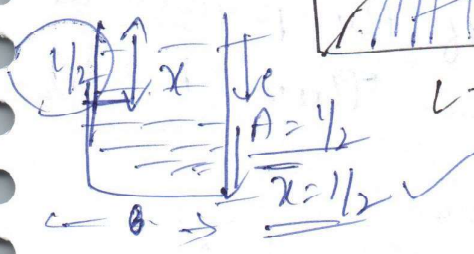 1/2
x
e
A = 1/2
x = 1/2
B
L